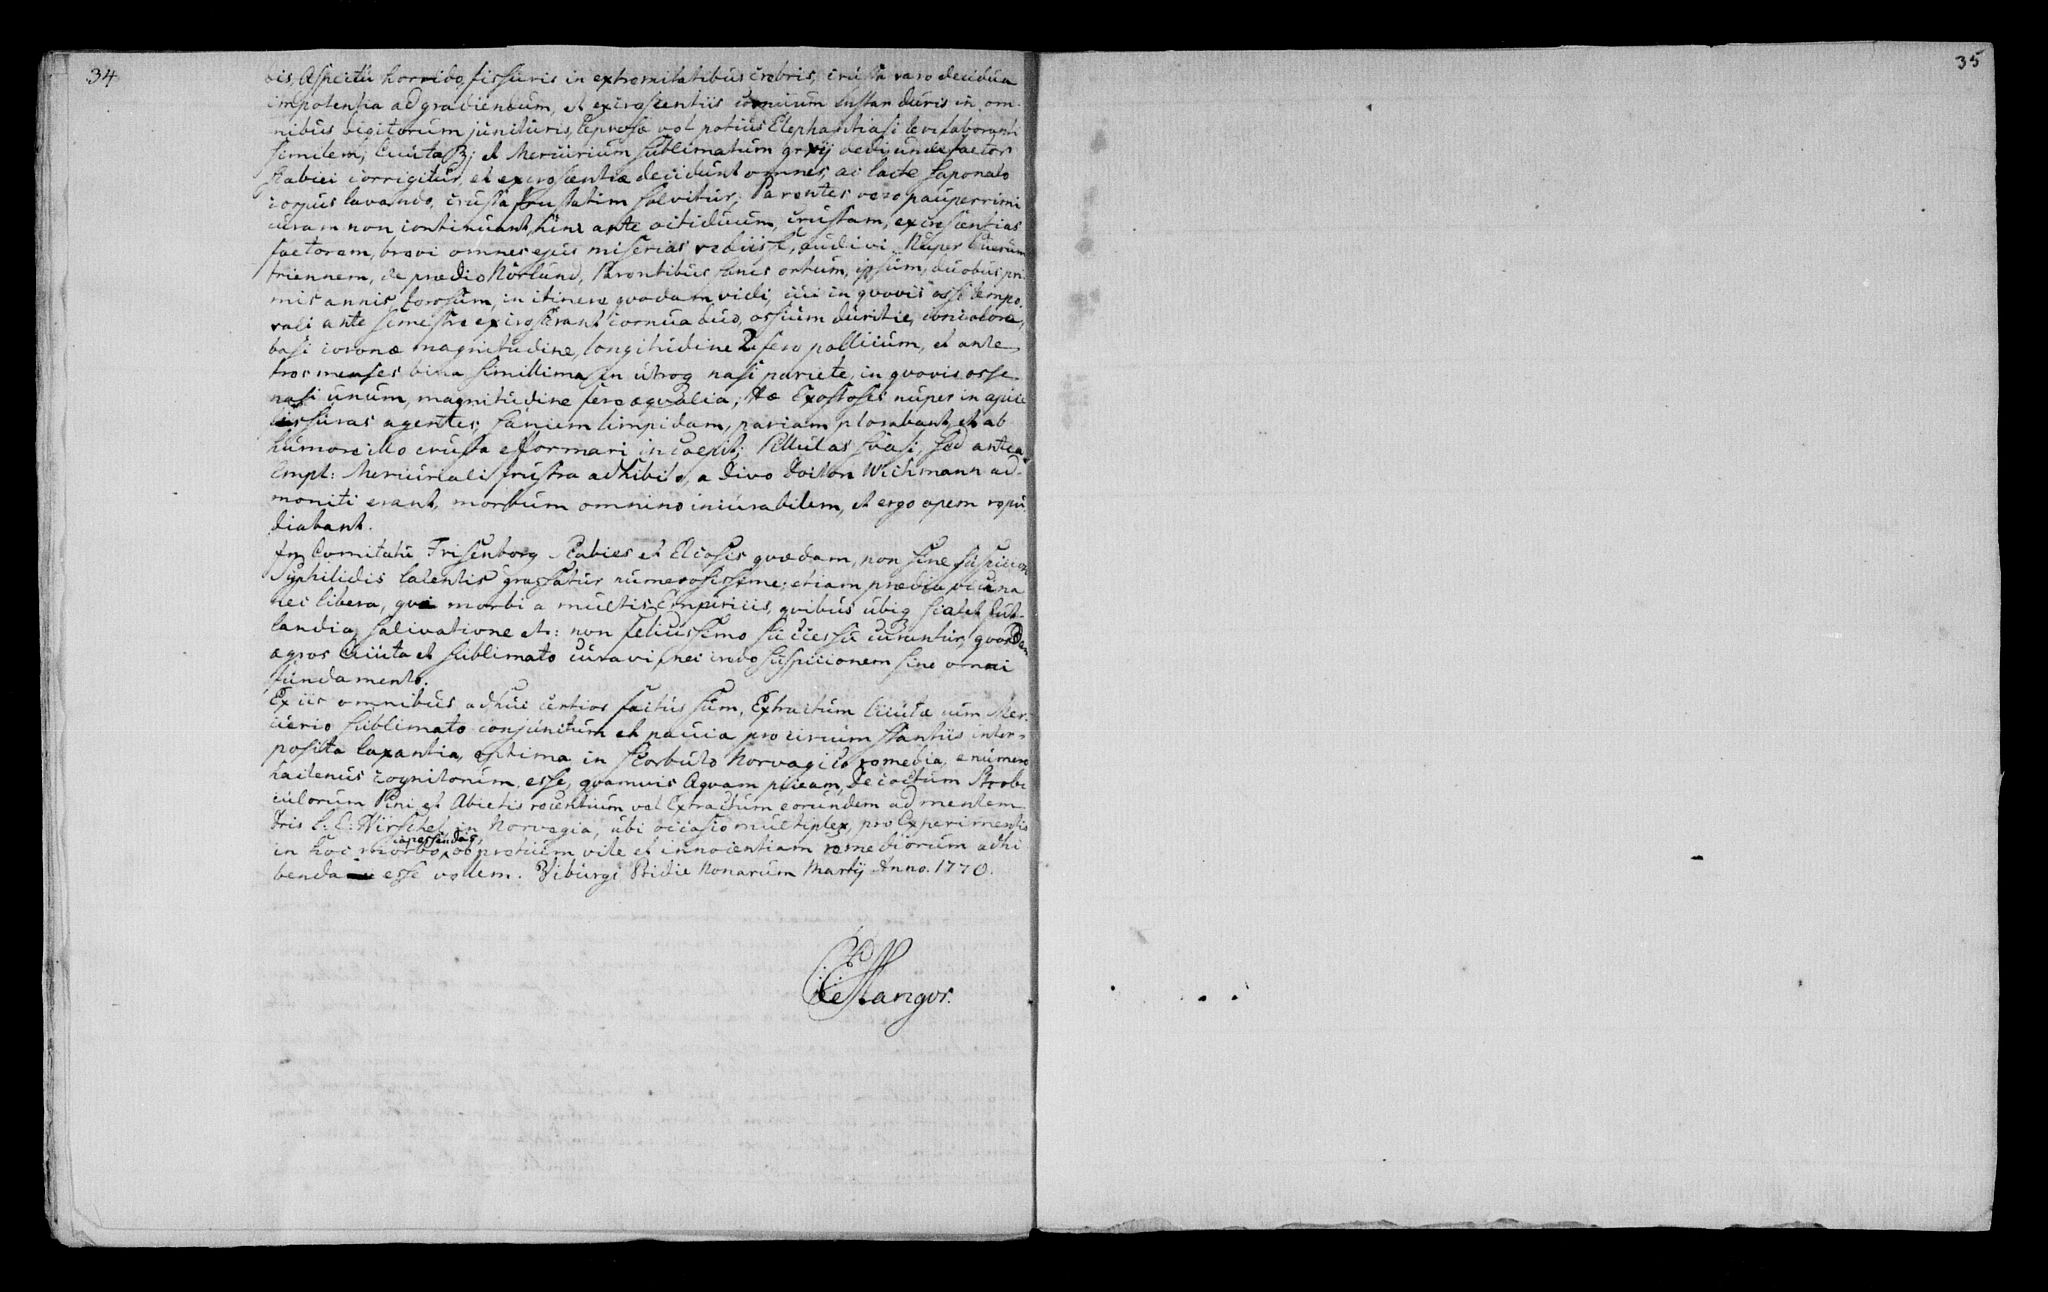 34
35
ris, Aspectu horrido, fissuris in extremitatibus crebris, crusta raro decidua
impotentia ad gradiendum, et excrescentiis cornuum instar duris in om-
nibus digitorum junituris, leprosa vel potius Elephantiasi levi laboranti
similem; Cicuta ʒj et Mercurium sublimatum gr xij dedi, unde faetor
scabiei corrigitur, et excrescentiæ decidunt omnes, ac lacte saponato
corpus lavando, crusta frustatim solvitur; Parentes vero pauperrimi
curam non continuant, hinc ante octiduum, crustam, excrescentias
faetorem, brevi omnes ejus miserias rediisse, audivi. Nuper Puerum
triennem, de prædio Nörlund, Parentibus sanis ortum, ipsum, duobus pri
mis annis torosum, in itinere quodam vidi, cui in quovis osse tempo-
rali ante semestre excrescerant cornua duo, ossium duritie, coni colore,
basi coronæ magnitudine, longitudine 2 fere pollicum, et ante
tres menses bina simillima in utroq nasi pariete, in quovis osse
nasi unum, magnitudine fere æqualia; Hæ Exostoses nuper in apice
fissuras agentes, saniem limpidam, parciam plorabant, et ab
humore illo crusta efformari incaepit; Pillulas suasi, sed antea
Empl: Mercuriali frustra adhibito, a Divo Doctore Wichmann ad-
moniti erant, morbum omnino incurabilem, et ergo opem repu-
diabant.
In Comitatu Frisenborg Scabies et Elcosis quædam, non sine suspicion
Syphilidis latentis grassatur numerosissime; etiam prædia vicina
nec libera, qui morbi a multis Empiricis, quibus ubiq scatet Jut-
landia, salivatione etc: non felicissimo successu curantur, quosdam
ægros Cicuta et sublimato curavi, nec credo suspicionem sine omni
fundamento.
Ex iis omnibus adhuc certior factus sum, Extractum Cicutæ cum Mer-
curio sublimato conjunctum et paucia pro circum stantiis inter-
posita laxantia, optima in scorbuto Norvagico remedia, e numero
hactenus cognitorum esse, quamvis Aquam piceam, Decoctum Strobi
culorum Pini et Abietis recentium vel Extractum eorundem ad mentem
Dris L: E: Hirschel, in Norvegia, ubi occasio multiplex, pro Experimentis
capessendis,
in hoc morbo, ob pretium vile et innocentiam remediorum adhi
benda esse velem. Viburgi Pridie Nonarum Martij Anno. 1770.
CE Mangor.